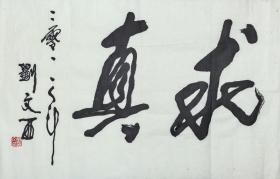 求真
二零一一年
劉文西